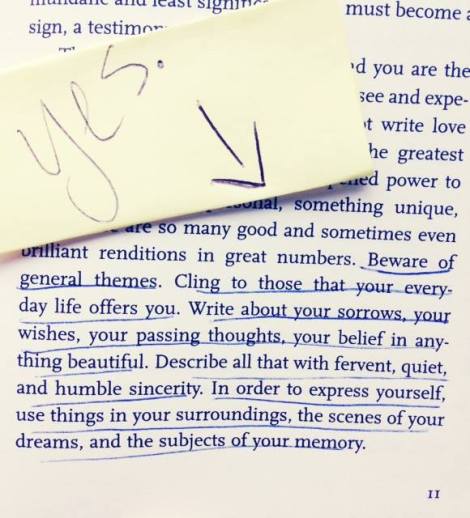 mundane and least
must become a
sign, a
yes.
d you are the
see and expe-
t write love
he greatest
power to
something unique,
are so many good and sometimes even
brilliant renditions in great numbers. Beware of
general themes. Cling to those that your every-
day life offers you. Write about your sorrows, your
wishes, your passing thoughts, your belief in any-
thing beautiful. Describe all that with fervent, quiet,
and humble sincerity. In order to express yourself,
use things in your surroundings, the scenes of your
dreams, and the subjects of your memory.
11